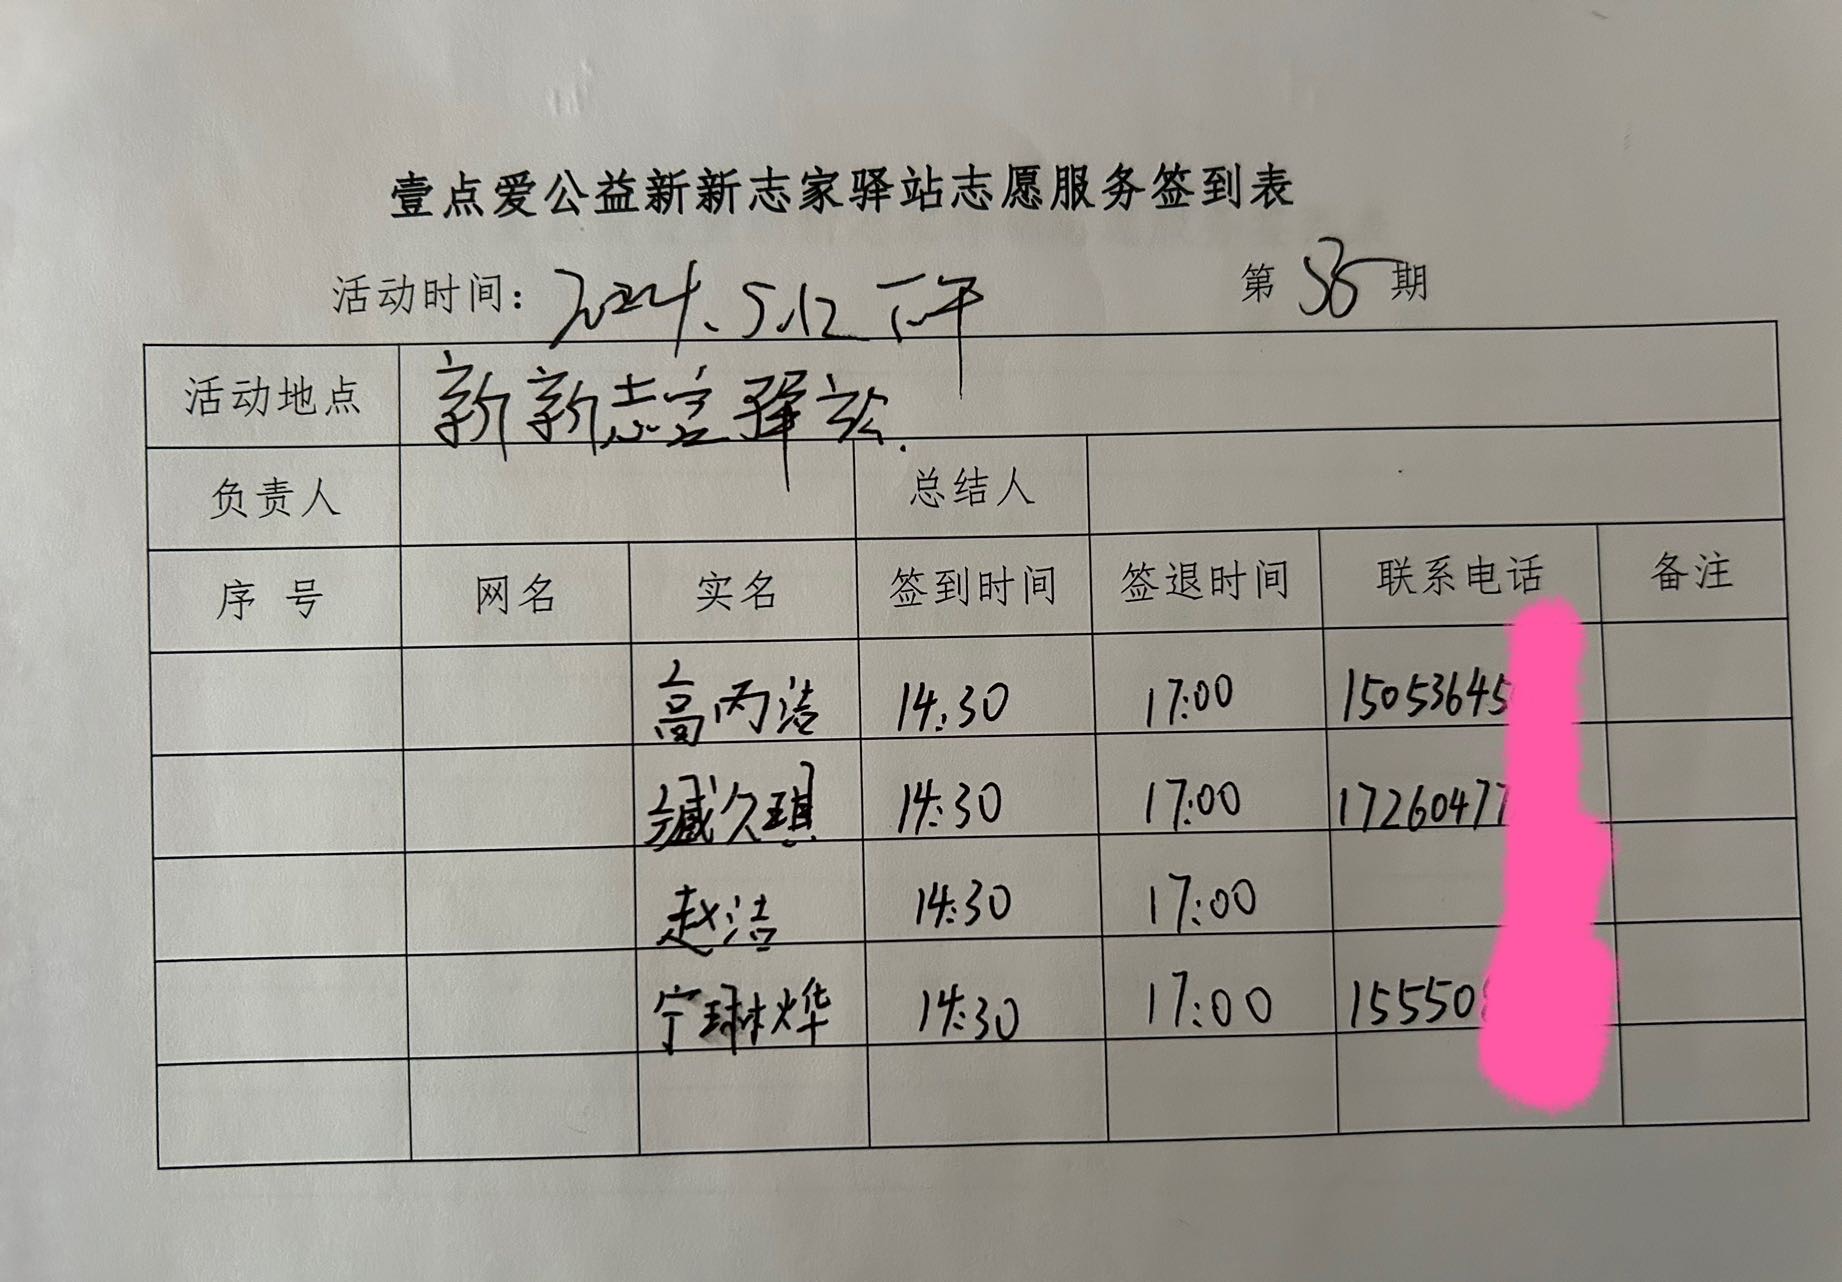 壹点爱公益新新志家驿站志愿服务签到表
活动时间：2024.5.12下午 第35期
活动地点 新新志家驿站.
负责人 总结人
序号 网名 实名 签到时间 签退时间 联系电话 备注
高丙洁 14:30 17:00 15053645
臧久琪 14:30 17:00 17260477
赵洁 14:30 17:00
宁琳烨 14:30 17:00 15550